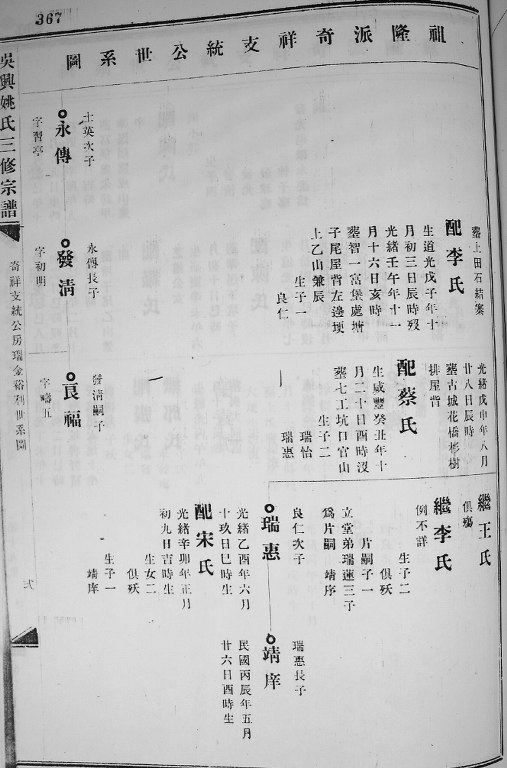 367
祖隆派奇祥支統公世系圖
墓上田石結案
配李氏
生道光戊子年十
月初三日辰時歿
光緒壬午年十一
月十六日亥時
墓智一富堡處塘
子尾屋背左邊埂
上乙山兼辰
生子一
良仁
永傳長子
發清
字初明
士英次子
永傳
字習亭
光緒戊申年八月
廿八日辰時
墓古城花橋彬樹
排屋背
配蔡氏
生咸豐癸丑年十
月二十日酉時沒
墓七工坑口官山
生子二
瑞怡
瑞惠
發清嗣子
良福
字疇五
繼王氏
俱殤
繼李氏
例不詳
生子二
俱殀
片嗣子一
立堂弟瑞蓮三子
為片嗣 靖庠
良仁次子
瑞惠
光緒乙酉年六月
十玖日巳時生
配宋氏
光緒辛卯年正月
初九日吉時生
生女二
俱殀
生子一
靖庠
瑞惠長子
靖庠
民國丙辰年五月
廿六日酉時生
吳興姚氏三修宗譜
奇祥支統公房瑞金裕利世系圖
弍